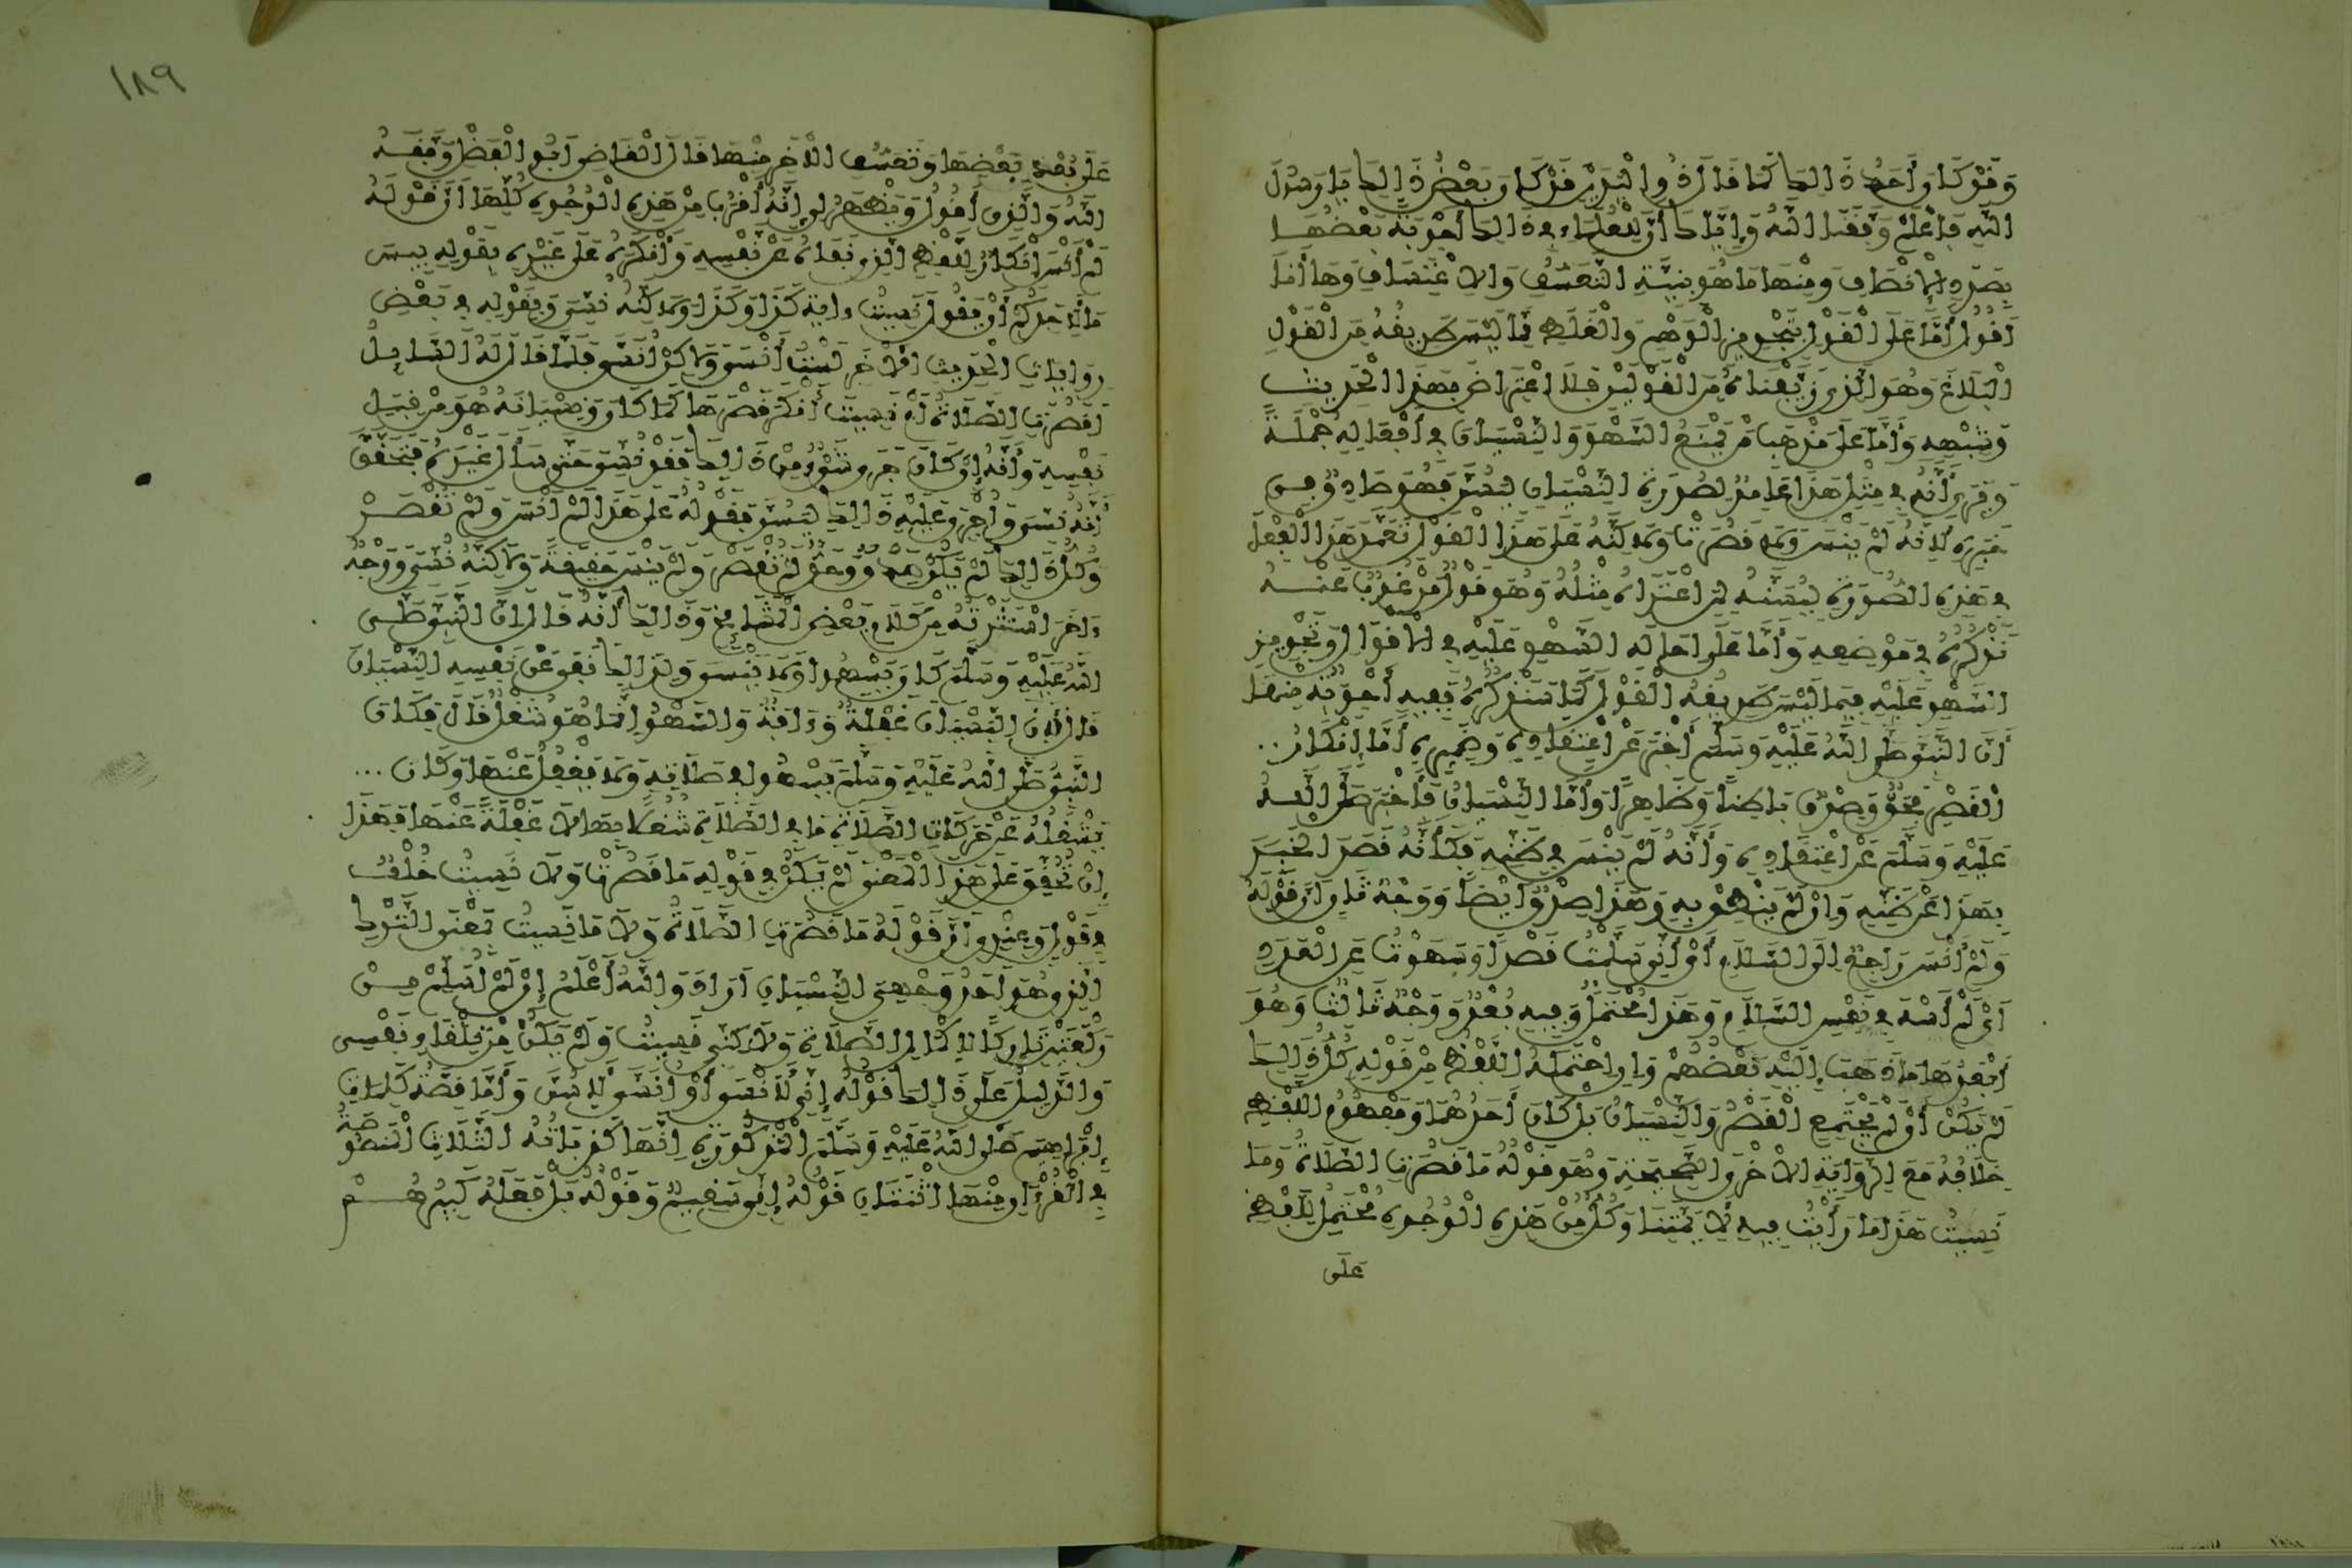 وَقَدْ كَانَ أَحَدُ ذَلِكَ كَمَا قَالَ ذُو الْيَدَيْنِ قَدْ كَانَ بَعْضُ ذَلِكَ يَا رَسُولَ
اللهِ فَاعْلَمْ وَفَّقَنَا اللهُ وَإِيَّاكَ أَنَّ لِلْعُلَمَاءِ فِي ذَلِكَ أَجْوِبَةً بَعْضُهَا
بِصَدَدِ الإِنْصَافِ وَمِنْهَا مَا هُوَ بِنِيَّةِ التَّعَسُّفِ وَالاِعْتِسَافِ وَهَا أَنَا
أَقُولُ أَمَّا عَلَى الْقَوْلِ بِتَجْوِيزِ الْوَهْمِ وَالْغَلَطِ مِمَّا لَيْسَ طَرِيقُهُ مِنَ الْقَوْلِ
الْبَلَاغَ وَهُوَ الَّذِي زَيَّفْنَاهُ مِنَ الْقَوْلَيْنِ فَلَا اعْتِرَاضَ بِهَذَا الْحَدِيثِ
وَشِبْهِهِ وَأَمَّا عَلَى مَذْهَبِ مَنْ يَمْنَعُ السَّهْوَ وَالنِّسْيَانَ فِي أَفْعَالِهِ جُمْلَةً
وَيَرَى أَنَّهُ فِي مِثْلِ هَذَا عَامِدٌ لِصُورَةِ النِّسْيَانِ لِيَسُنَّ فَهُوَ صَادِقٌ فِي
خَبَرِهِ لِأَنَّهُ لَمْ يَنْسَ وَلَا قَصُرَتْ وَلَكِنَّهُ عَلَى هَذَا الْقَوْلِ تَعَمَّدَ هَذَا الْفِعْلَ
فِي هَذِهِ الصُّورَةِ لِيَسُنَّهُ لِمَنِ اعْتَرَاهُ مِثْلُهُ وَهُوَ قَوْلٌ مَرْغُوبٌ عَنْهُ
نَذْكُرُهُ فِي مَوْضِعِهِ وَأَمَّا عَلَى إِحَالَةِ السَّهْوِ عَلَيْهِ فِي الأَقْوَالِ وَتَجْوِيزِ
السَّهْوِ عَلَيْهِ فِيمَا لَيْسَ طَرِيقُهُ الْقَوْلَ كَمَا سَنَذْكُرُهُ فَفِيهِ أَجْوِبَةٌ مِنْهَا
أَنَّ النَّبِيَّ صَلَّى اللهُ عَلَيْهِ وَسَلَّمَ أَخْبَرَ عَنِ اعْتِقَادِهِ وَضَمِيرِهِ أَمَّا إِنْكَارُ
الْقَصْرِ فَحَقٌّ وَصِدْقٌ بَاطِنًا وَظَاهِرًا وَأَمَّا النِّسْيَانُ فَأَخْبَرَ صَلَّى اللهُ
عَلَيْهِ وَسَلَّمَ عَنِ اعْتِقَادِهِ وَأَنَّهُ لَمْ يَنْسَ فِي ظَنِّهِ فَكَأَنَّهُ قَصَدَ الْخَبَرَ
بِهَذَا عَنْ ظَنِّهِ وَإِنْ لَمْ يَنْطِقْ بِهِ وَهَذَا صِدْقٌ أَيْضًا وَوَجْهٌ ثَانٍ أَنَّ قَوْلَهُ
وَلَمْ أَنْسَ رَاجِعٌ إِلَى السَّلَامِ أَيْ أَنِّي سَلَّمْتُ قَصْدًا وَسَهَوْتُ عَنِ الْعَدَدِ
أَيْ لَمْ أَسْهَ فِي نَفْسِ السَّلَامِ وَهَذَا مُحْتَمَلٌ وَفِيهِ بُعْدٌ وَوَجْهٌ ثَالِثٌ وَهُوَ
أَبْعَدُهَا مَا ذَهَبَ إِلَيْهِ بَعْضُهُمْ وَإِنِ احْتَمَلَهُ اللَّفْظُ مِنْ قَوْلِهِ كُلُّ ذَلِكَ
لَمْ يَكُنْ أَيْ لَمْ يَجْتَمِعِ الْقَصْرُ وَالنِّسْيَانُ بَلْ كَانَ أَحَدُهُمَا وَمَفْهُومُ اللَّفْظِ
خِلَافُهُ مَعَ الرِّوَايَةِ الأُخْرَى الصَّحِيحَةِ وَهُوَ قَوْلُهُ مَا قَصُرَتِ الصَّلَاةُ وَمَا
نَسِيتُ هَذَا مَا رَأَيْتُ فِيهِ لِأَئِمَّتِنَا وَكُلٌّ مِنْ هَذِهِ الْوُجُوهِ مُحْتَمِلٌ لِلَّفْظِ
عَلَى
١٨٩
عَلَى بُعْدِ بَعْضِهَا وَتَعَسُّفِ الآخَرِ مِنْهَا قَالَ الْقَاضِي أَبُو الْفَضْلِ وَفَّقَهُ
اللهُ وَالَّذِي أَقُولُ وَيَظْهَرُ لِي أَنَّهُ أَقْرَبُ مِنْ هَذِهِ الْوُجُوهِ كُلِّهَا أَنَّ قَوْلَهُ
لَمْ أَنْسَ إِنْكَارٌ لِلَّفْظِ الَّذِي نَفَاهُ عَنْ نَفْسِهِ وَأَنْكَرَهُ عَلَى غَيْرِهِ بِقَوْلِهِ بِيسَ
مَا لِأَحَدِكُمْ أَنْ يَقُولَ نَسِيتُ ءَايَةَ كَذَا وَكَذَا وَلَكِنَّهُ نُسِّيَ وَبِقَوْلِهِ فِي بَعْضِ
رِوَايَاتِ الْحَدِيثِ الأُخَرِ لَسْتُ أَنْسَى وَلَكِنْ أُنَسَّى فَلَمَّا قَالَ لَهُ السَّايِلُ
أَقَصُرَتِ الصَّلَاةُ أَمْ نَسِيتَ أَنْكَرَ قَصْرَهَا كَمَا كَانَ وَنِسْيَانَهُ هُوَ مِنْ قِبَلِ
نَفْسِهِ وَأَنَّهُ إِنْ كَانَ جَرَى شَيْءٌ مِنْ ذَلِكَ فَقَدْ نُسِّيَ حَتَّى سَأَلَ غَيْرَهُ فَتَحَقَّقَ
أَنَّهُ نُسِّيَ وَأُجْرِيَ عَلَيْهِ ذَلِكَ لِيَسُنَّ فَقَوْلُهُ عَلَى هَذَا لَمْ أَنْسَ وَلَمْ تُقْصَرْ
وَكُلُّ ذَلِكَ لَمْ يَكُنْ صِدْقٌ وَحَقٌّ لَمْ تُقْصَرْ وَلَمْ يَنْسَ حَقِيقَةً وَلَكِنَّهُ نُسِّيَ وَوَجْهٌ
ءَاخَرُ اسْتَثَرْتُهُ مِنْ كَلَامِ بَعْضِ الْمَشَايِخِ وَذَلِكَ أَنَّهُ قَالَ إِنَّ النَّبِيَّ صَلَّى
اللهُ عَلَيْهِ وَسَلَّمَ كَانَ يَسْهُوا وَلَا يَنْسَى وَلِذَلِكَ نَفَى عَنْ نَفْسِهِ النِّسْيَانَ
قَالَ لِأَنَّ النِّسْيَانَ غَفْلَةٌ وَءَافَةٌ وَالسَّهْوُ إِنَّمَا هُوَ شُغْلٌ قَالَ فَكَانَ
النَّبِيُّ صَلَّى اللهُ عَلَيْهِ وَسَلَّمَ يَسْهُوا فِي صَلَاتِهِ وَلَا يَغْفُلُ عَنْهَا وَكَانَ ...
يَشْغَلُهُ عَنْ حَرَكَاتِ الصَّلَاةِ مَا فِي الصَّلَاةِ شُغْلًا بِهَا لَا غَفْلَةً عَنْهَا فَهَذَا
إِنْ تُحُقِّقَ عَلَى هَذَا الْمَعْنَى لَمْ يَكُنْ فِي قَوْلِهِ مَا قَصُرَتْ وَلَا نَسِيتُ خُلْفٌ
فِي قَوْلٍ وَعِنْدِي أَنَّ قَوْلَهُ مَا قَصُرَتِ الصَّلَاةُ وَلَا مَا نَسِيتُ بِمَعْنَى التَّرْكِ
الَّذِي هُوَ أَحَدُ وَجْهَيِ النِّسْيَانِ أَرَادَ وَاللهُ أَعْلَمُ إِنِّي لَمْ أُسَلِّمْ مِنْ
رَكْعَتَيْنِ تَارِكًا لِإِكْمَالِ الصَّلَاةِ وَلَكِنِّي نَسِيتُ وَلَمْ يَكُنْ مِنْ تِلْقَاءِ نَفْسِي
وَالدَّلِيلُ عَلَى ذَلِكَ قَوْلُهُ إِنِّي لَأَنْسَى أَوْ أُنَسَّى لِأَسُنَّ وَأَمَّا قِصَّةُ كَلِمَاتِ
إِبْرَاهِيمَ صَلَّى اللهُ عَلَيْهِ وَسَلَّمَ الْمَذْكُورَةِ إِنَّهَا كَذِبَاتُهُ الثَّلَاثُ الْمَنْصُوصَةُ
فِي الْقُرْءَانِ مِنْهَا اثْنَتَانِ قَوْلُهُ إِنِّي سَقِيمٌ وَقَوْلُهُ بَلْ فَعَلَهُ كَبِيرُهُمْ